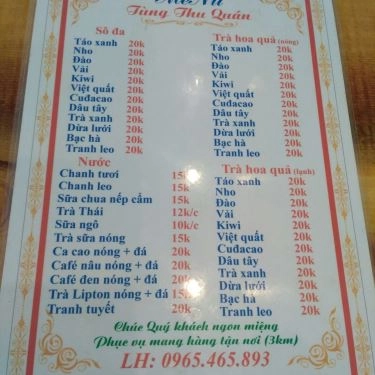 MENU
Tùng Thu Quán
Sô đa
Táo xanh 20k
Nho 20k
Đào 20k
Vải 20k
Kiwi 20k
Việt quất 20k
Cuđacao 20k
Dâu tây 20k
Trà xanh 20k
Dừa lưới 20k
Bạc hà 20k
Tranh leo 20k
Nước
Chanh tươi 15k
Chanh leo 15k
Sữa chua nếp cẩm 15k
Trà Thái 12k/c
Sữa ngô 10k/c
Trà sữa nóng 15k
Ca cao nóng + đá 20k
Café nâu nóng + đá 20k
Café đen nóng + đá 20k
Trà Lipton nóng + đá 15k
Tranh tuyết 20k
Trà hoa quả (nóng)
Táo xanh 20k
Nho 20k
Đào 20k
Vải 20k
Kiwi 20k
Việt quất 20k
Cuđacao 20k
Dâu tây 20k
Trà xanh 20k
Dừa lưới 20k
Bạc hà 20k
Tranh leo 20k
Trà hoa quả (lạnh)
Táo xanh 20k
Nho 20k
Đào 20k
Vải 20k
Kiwi 20k
Việt quất 20k
Cuđacao 20k
Dâu tây 20k
Trà xanh 20k
Dừa lưới 20k
Bạc hà 20k
Tranh leo 20k
Chúc Quý khách ngon miệng
Phục vụ mang hàng tận nơi (3km)
LH: 0965.465.893